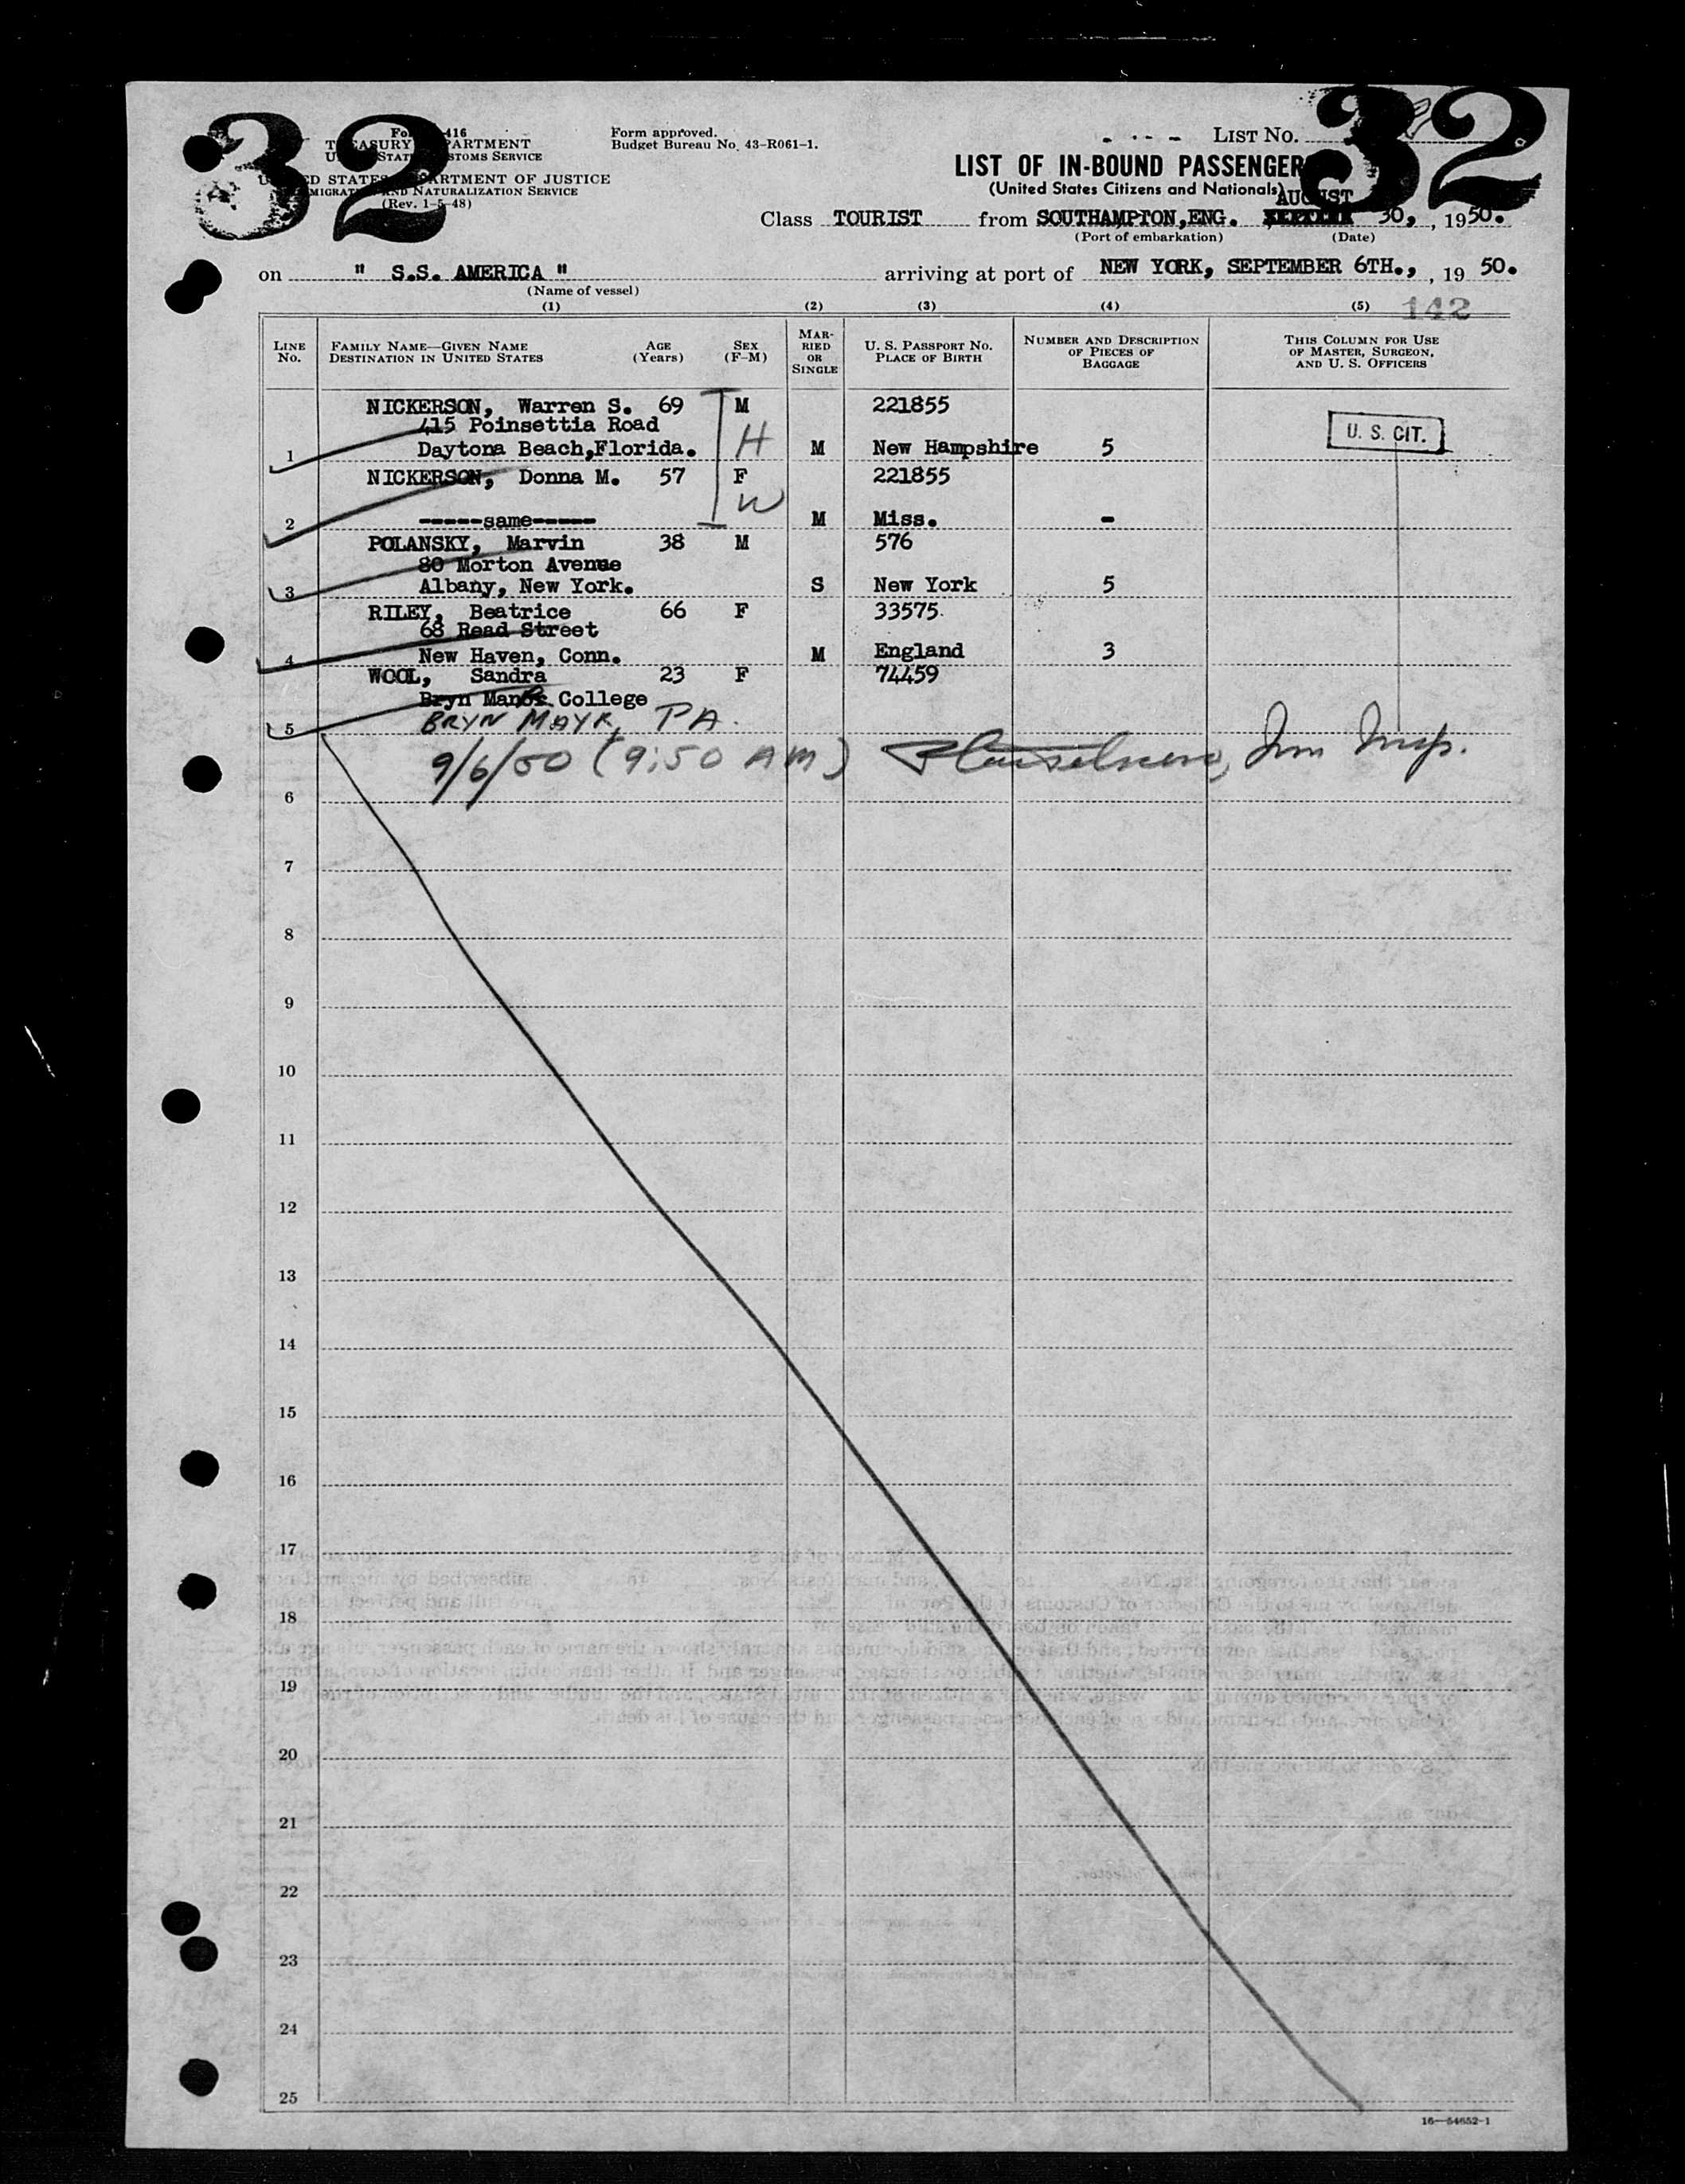 32
32
416
PARTMENT
CUSTOMS SERVICE
DEPARTMENT OF JUSTICE
AND NATURALIZATION SERVICE
(Rev. 1-5-48)
Form approved.
Budget Bureau No. 43-R061-1.
LIST No.
LIST OF IN-BOUND PASSENGER
(United States Citizens and Nationals)
AUGUST
Class TOURIST from SOUTHAMPTON,ENG. 30, , 1950.
(Port of embarkation) (Date)
on " S.S. AMERICA " arriving at port of NEW YORK, SEPTEMBER 6TH., , 19 50.
(Name of vessel)
(1) (2) (3) (4) (5) 142
LINE No. FAMILY NAME—GIVEN NAME DESTINATION IN UNITED STATES AGE (Years) SEX (F-M) MARRIED OR SINGLE U. S. PASSPORT NO. PLACE OF BIRTH NUMBER AND DESCRIPTION OF PIECES OF BAGGAGE THIS COLUMN FOR USE OF MASTER, SURGEON, AND U. S. OFFICERS
NICKERSON, Warren S. 69 M 221855
415 Poinsettia Road U. S. CIT.
1 Daytona Beach,Florida. H M New Hampshire 5
NICKERSON, Donna M. 57 F 221855
W
2 -----same----- M Miss. -
POLANSKY, Marvin 38 M 576
80 Morton Avenue
3 Albany, New York. S New York 5
RILEY, Beatrice 66 F 33575
68 Read Street
4 New Haven, Conn. M England 3
WOOL, Sandra 23 F 74459
Bryn College
5 BRYN MAYR, PA.
9/6/50 (9:50 AM) Imm Insp.
6
7
8
9
10
11
12
13
14
15
16
17
18
19
20
21
22
23
24
25
16—54652-1